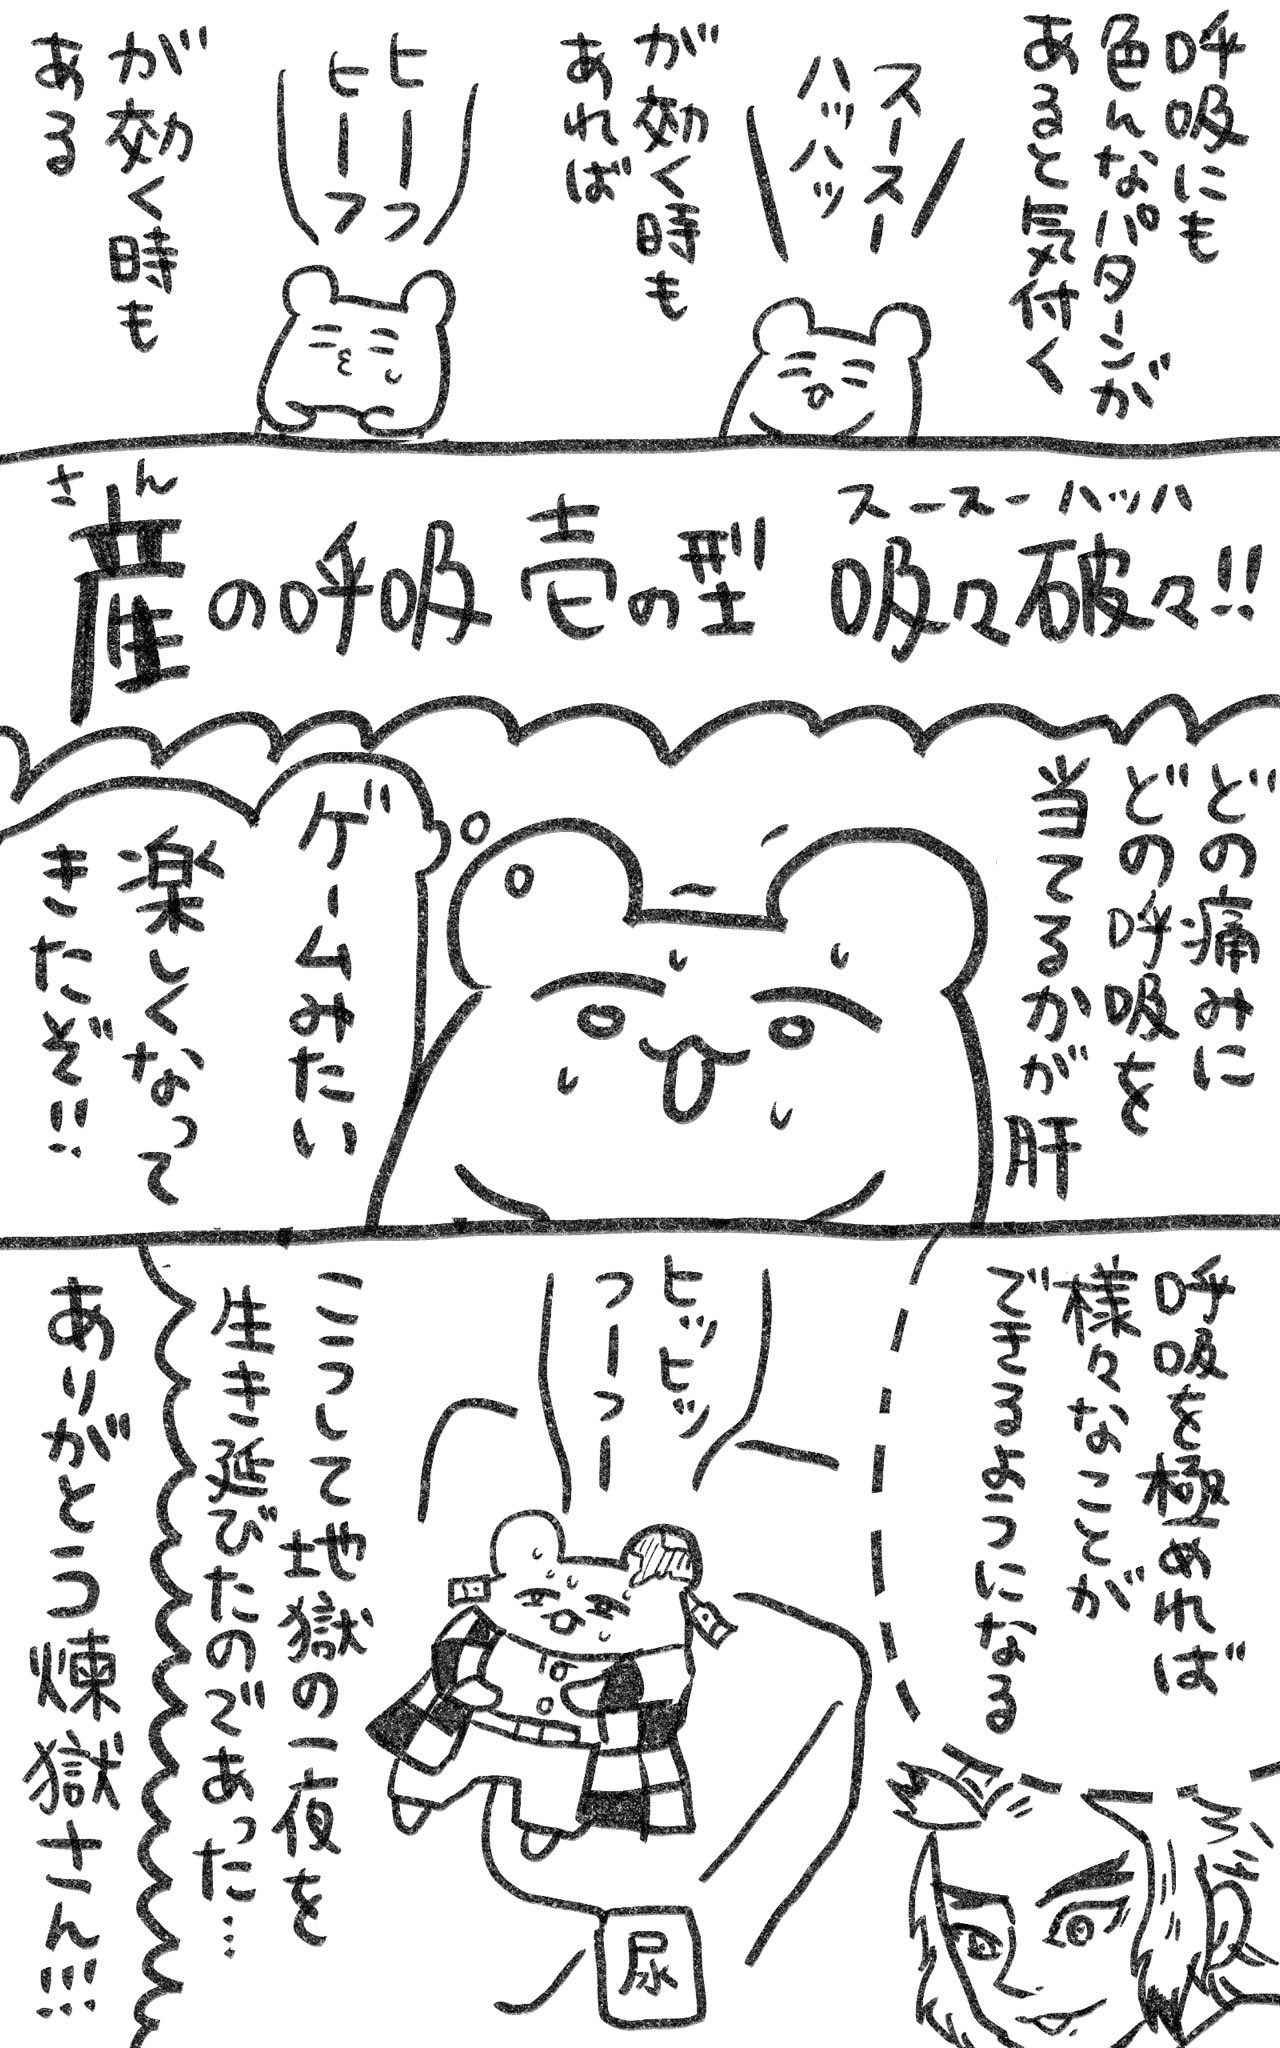 呼吸にも
色んなパターンが
あると気付く
スースー
ハッハッ
が効く時も
あれば
ヒーっ
ヒーフ
が効く時も
ある
さん
産の呼吸 壱の型 吸々破々!!
スースーハッハ
どの痛みに
どの呼吸を
当てるかが肝
ゲームみたい
楽しくなって
きたぞ!!
呼吸を極めれば
様々なことが
できるようになる
ヒッヒッ
フーフー
こうして地獄の一夜を
生き延びたのであった…
ありがとう煉獄さん!!!
尿